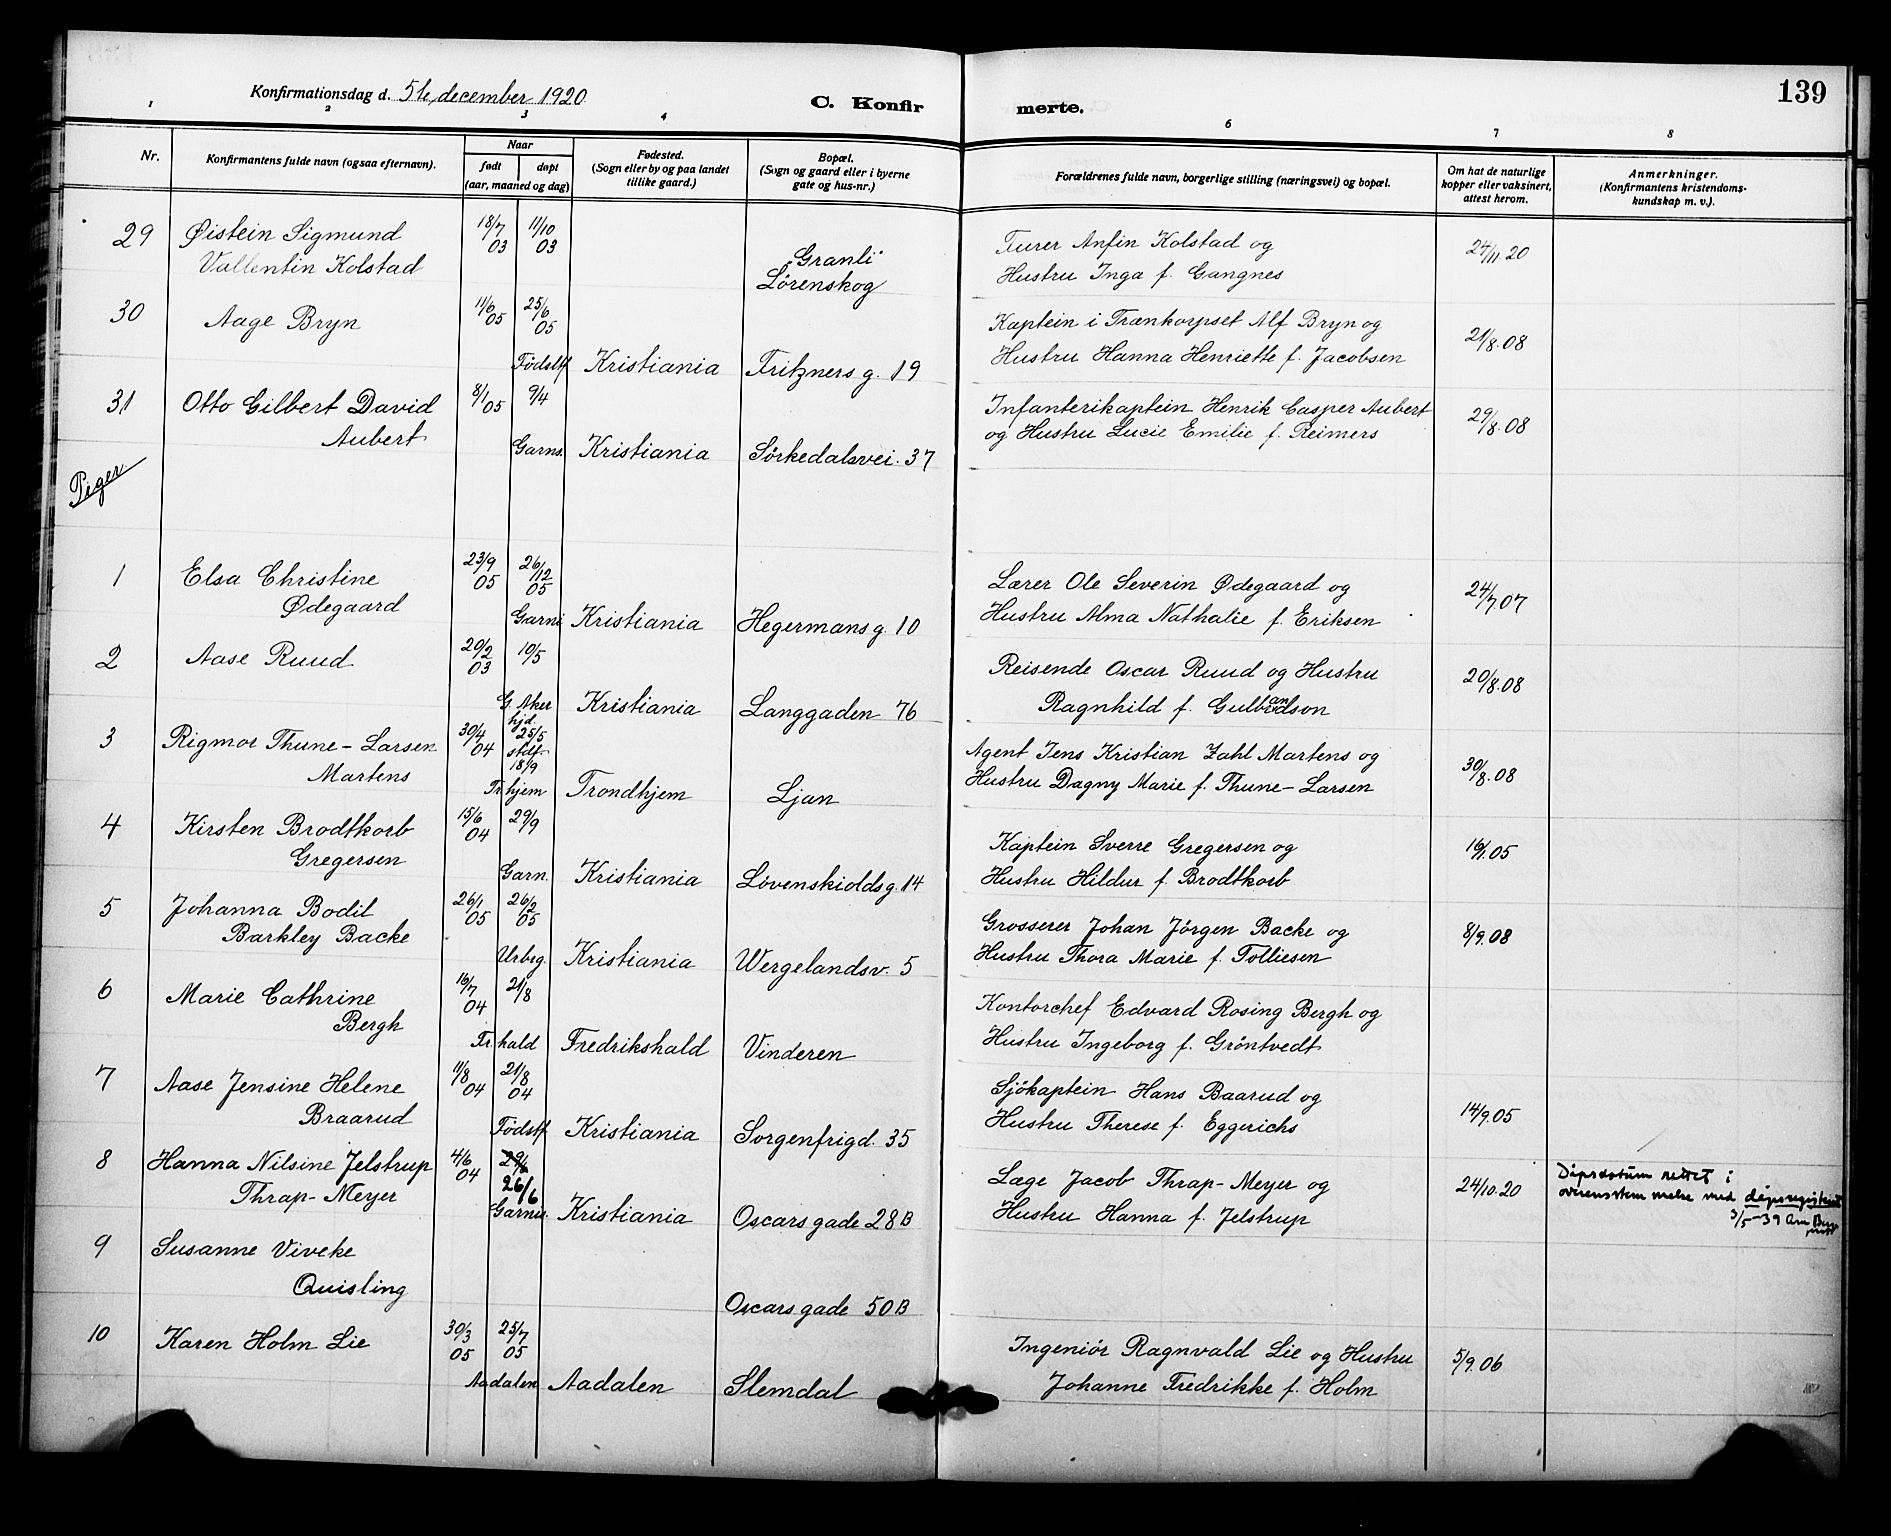 Konfirmationsdag d. 5te december 1920
C. Konfirmerte.
139
1 2 3 4 6 7 8
Nr.
Konfirmantens fulde navn (ogsaa efternavn).
Naar
født døpt
(aar, maaned og dag)
Fødested.
(Sogn eller by og paa landet
tillike gaard.)
Bopæl.
(Sogn og gaard eller i byerne
gate og hus-nr.)
Forældrenes fulde navn, borgerlige stilling (næringsvei) og bopæl.
Om hat de naturlige
kopper eller vaksinert,
attest herom.
Anmerkninger.
(Konfirmantens kristendoms-
kundskap m. v.).
29 Øistein Sigmund 18/7 03 11/10 03 Furer Anfin Kolstad og 24/11.20
Vallentin Kolstad "Granli" Lørenskog Hustru Inga f. Gangnes
30 Aage Bryn 11/6 05 25/6 05 Kaptein i Trænkorpset Alf Bryn og 21/8.08
Fødstf Kristiania Fritzners g. 19 Hustru Hanna Henriette f. Jacobsen
31 Otto Gilbert David 8/1 05 9/4 Infanterikaptein Henrik Casper Aubert 29/8.08
Aubert Garns. Kristiania Sørkedalsvei. 37 og Hustru Lucie Emilie f. Reimers
Piger
1 Elsa Christine 23/9 05 26/12 05 Lærer Ole Severin Ødegaard og 24/7.07
Ødegaard Garni Kristiania Hegermans g. 10 Hustru Alma Nathalie f. Eriksen
2 Aase Ruud 20/2 03 10/5 Reisende Oscar Ruud og Hustru 20/8.08
G. Aker Kristiania Langgaden 76 Ragnhild f. Gulbrandson
3 Rigmor Thune-Larsen 30/4 04 hjd. 25/5 stdf. 18/9 Agent Jens Kristian Zahl Martens og 30/8.08
Martens Tr.hjem Trondhjem Ljan Hustru Dagny Marie f. Thune-Larsen
4 Kirsten Brodtkorb 15/6 04 29/9 Kaptein Sverre Gregersen og 16/1.05
Gregersen Garn. Kristiania Løvenskiolds g. 14 Hustru Hildur f. Brodtkorb
5 Johanna Bodil 26/1 05 26/2 05 Grosserer Johan Jörgen Backe og 8/9.08
Barkley Backe Urbrg. Kristiania Wergelandsv. 5 Hustru Thora Marie f. Tolliesen
6 Marie Cathrine 16/7 04 21/8 Kontorchef Edvard Rosing Bergh og
Bergh Fr.hald Fredrikshald Vinderen Hustru Ingeborg f. Gröntvedt
7 Aase Jensine Helene 11/8 04 21/8 04 Sjökaptein Hans Baarud og 14/9.05
Braarud Fødstf. Kristiania Sorgenfrigd. 35 Hustru Therese f. Eggerichs
8 Hanna Nilsine Jelstrup 4/6 04 29/6 Læge Jacob Thrap-Meyer og 24/10.20
Thrap-Meyer 26/6 Garnis. Kristiania Oscars gade 28B Hustru Hanna f. Jelstrup
Dåpsdatum rettet i
overensstemmelse med dåpsregisteret
3/5-39
9 Susanne Viveke
Quisling Oscars gade 50B
10 Karen Holm Lie 30/3 05 25/7 05 Ingeniör Ragnvald Lie og Hustru 5/9.06
Aadalen Aadalen Slemdal Johanne Fredrikke f. Holm